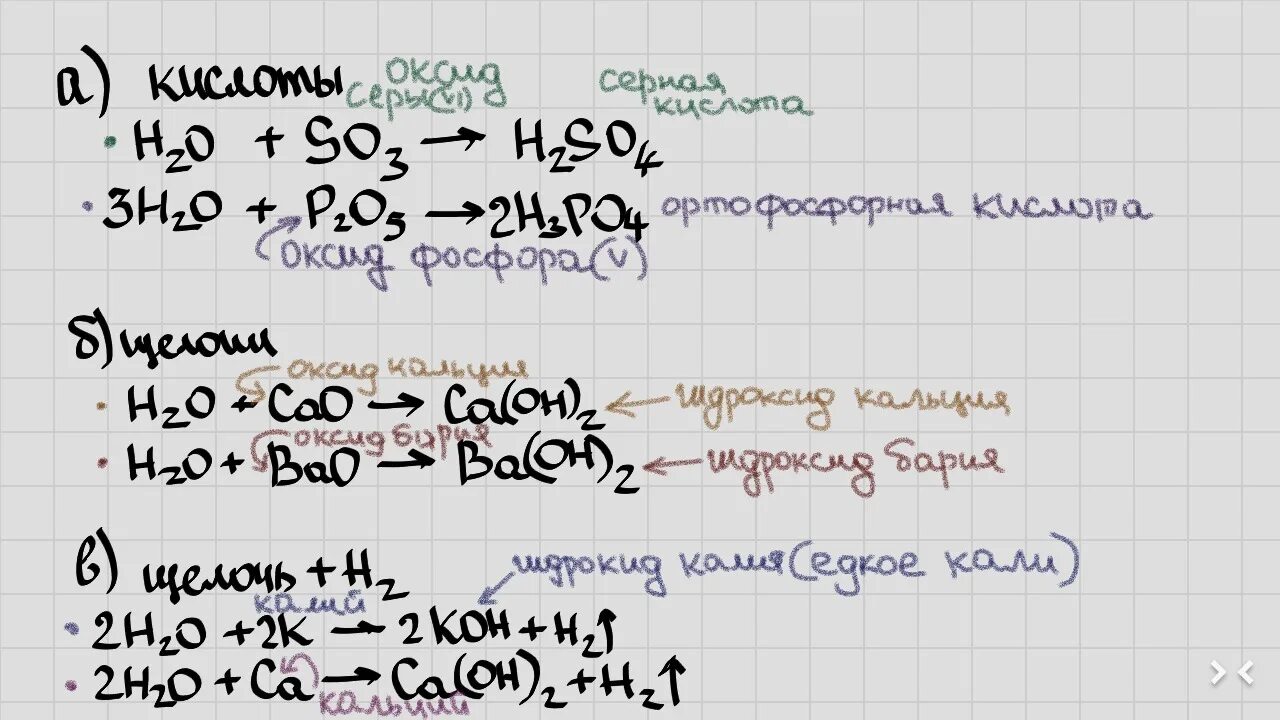 а) кислоты
оксид серы(VI)
серная кислота
• H₂O + SO₃ → H₂SO₄
• 3H₂O + P₂O₅ → 2H₃PO₄ ортофосфорная кислота
оксид фосфора(V)
б) щелочи
оксид кальция
• H₂O + CaO → Ca(OH)₂ ← гидроксид кальция
оксид бария
• H₂O + BaO → Ba(OH)₂ ← гидроксид бария
в) щелочь + H₂
гидрокид калия (едкое кали)
калий
• 2H₂O + 2K → 2KOH + H₂↑
• 2H₂O + Ca → Ca(OH)₂ + H₂↑
кальций